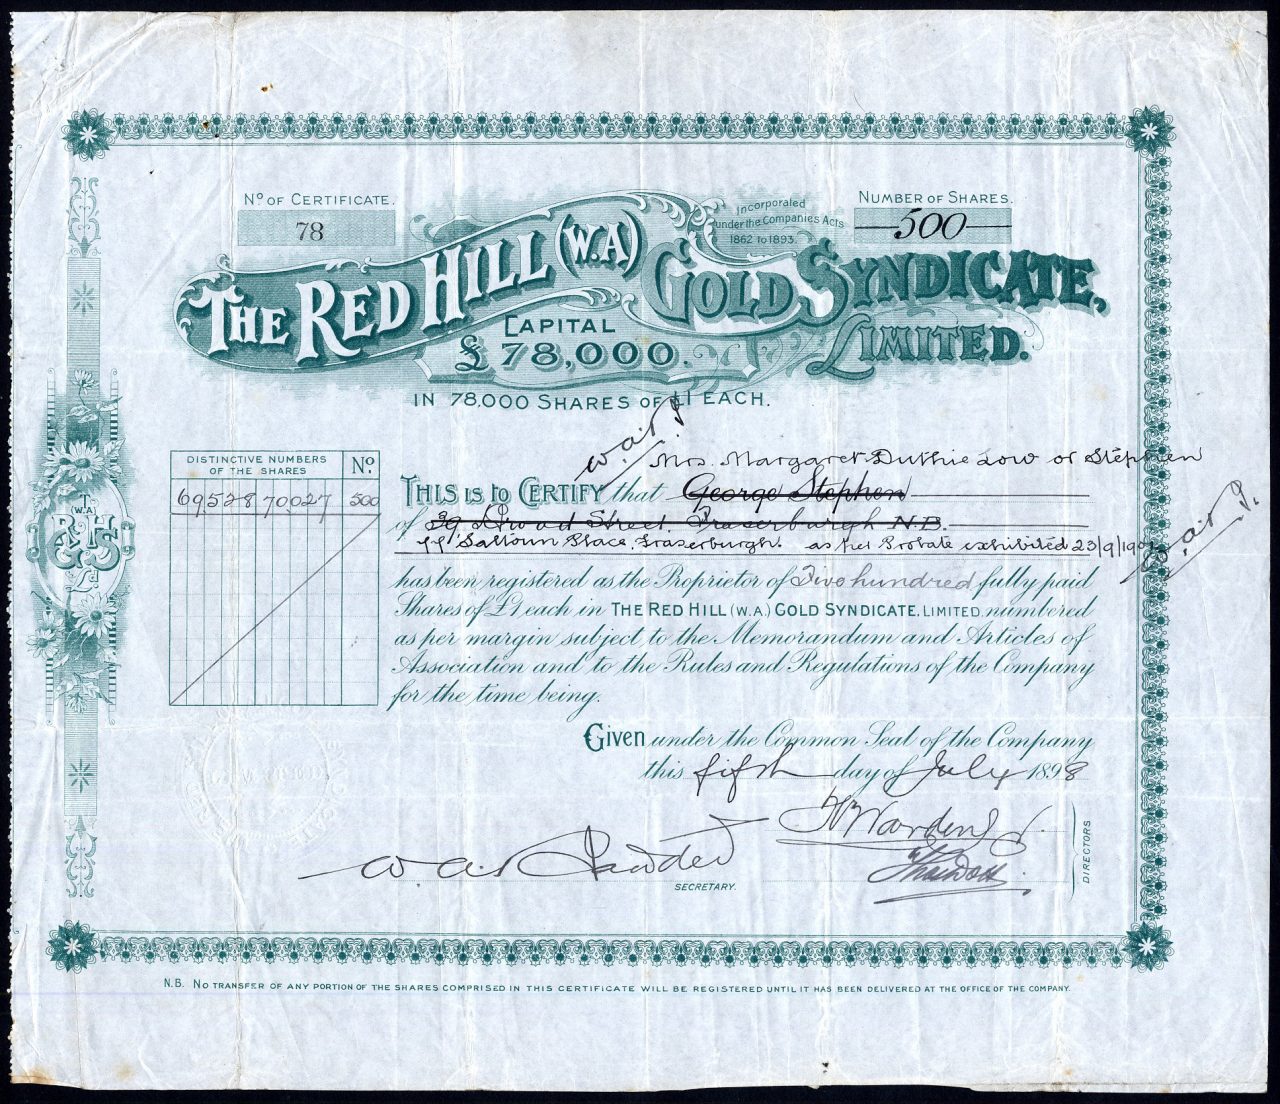 Nº OF CERTIFICATE.
78
NUMBER OF SHARES.
500
Incorporated
under the Companies Acts
1862 to 1893.
THE RED HILL (W.A) GOLD SYNDICATE,
LIMITED.
CAPITAL
£78,000.
IN 78,000 SHARES OF £1 EACH.
DISTINCTIVE NUMBERS
OF THE SHARES
Nº
69528 70027 500
Mrs. Margaret Duthie Low or Stephen
THIS IS to CERTIFY that George Stephen
of 39 Broad Street, Fraserburgh N.B.
Saltoun Place, Fraserburgh. as per Probate exhibited 23/9/
has been registered as the Proprietor of Five hundred fully paid
Shares of £1 each in THE RED HILL (W.A.) GOLD SYNDICATE, LIMITED, numbered
as per margin subject to the Memorandum and Articles of
Association and to the Rules and Regulations of the Company
for the time being.
Given under the Common Seal of the Company
this fifth day of July 1898
SECRETARY.
DIRECTORS
T
(W.A)
R H
G S
Ld
N.B. NO TRANSFER OF ANY PORTION OF THE SHARES COMPRISED IN THIS CERTIFICATE WILL BE REGISTERED UNTIL IT HAS BEEN DELIVERED AT THE OFFICE OF THE COMPANY.